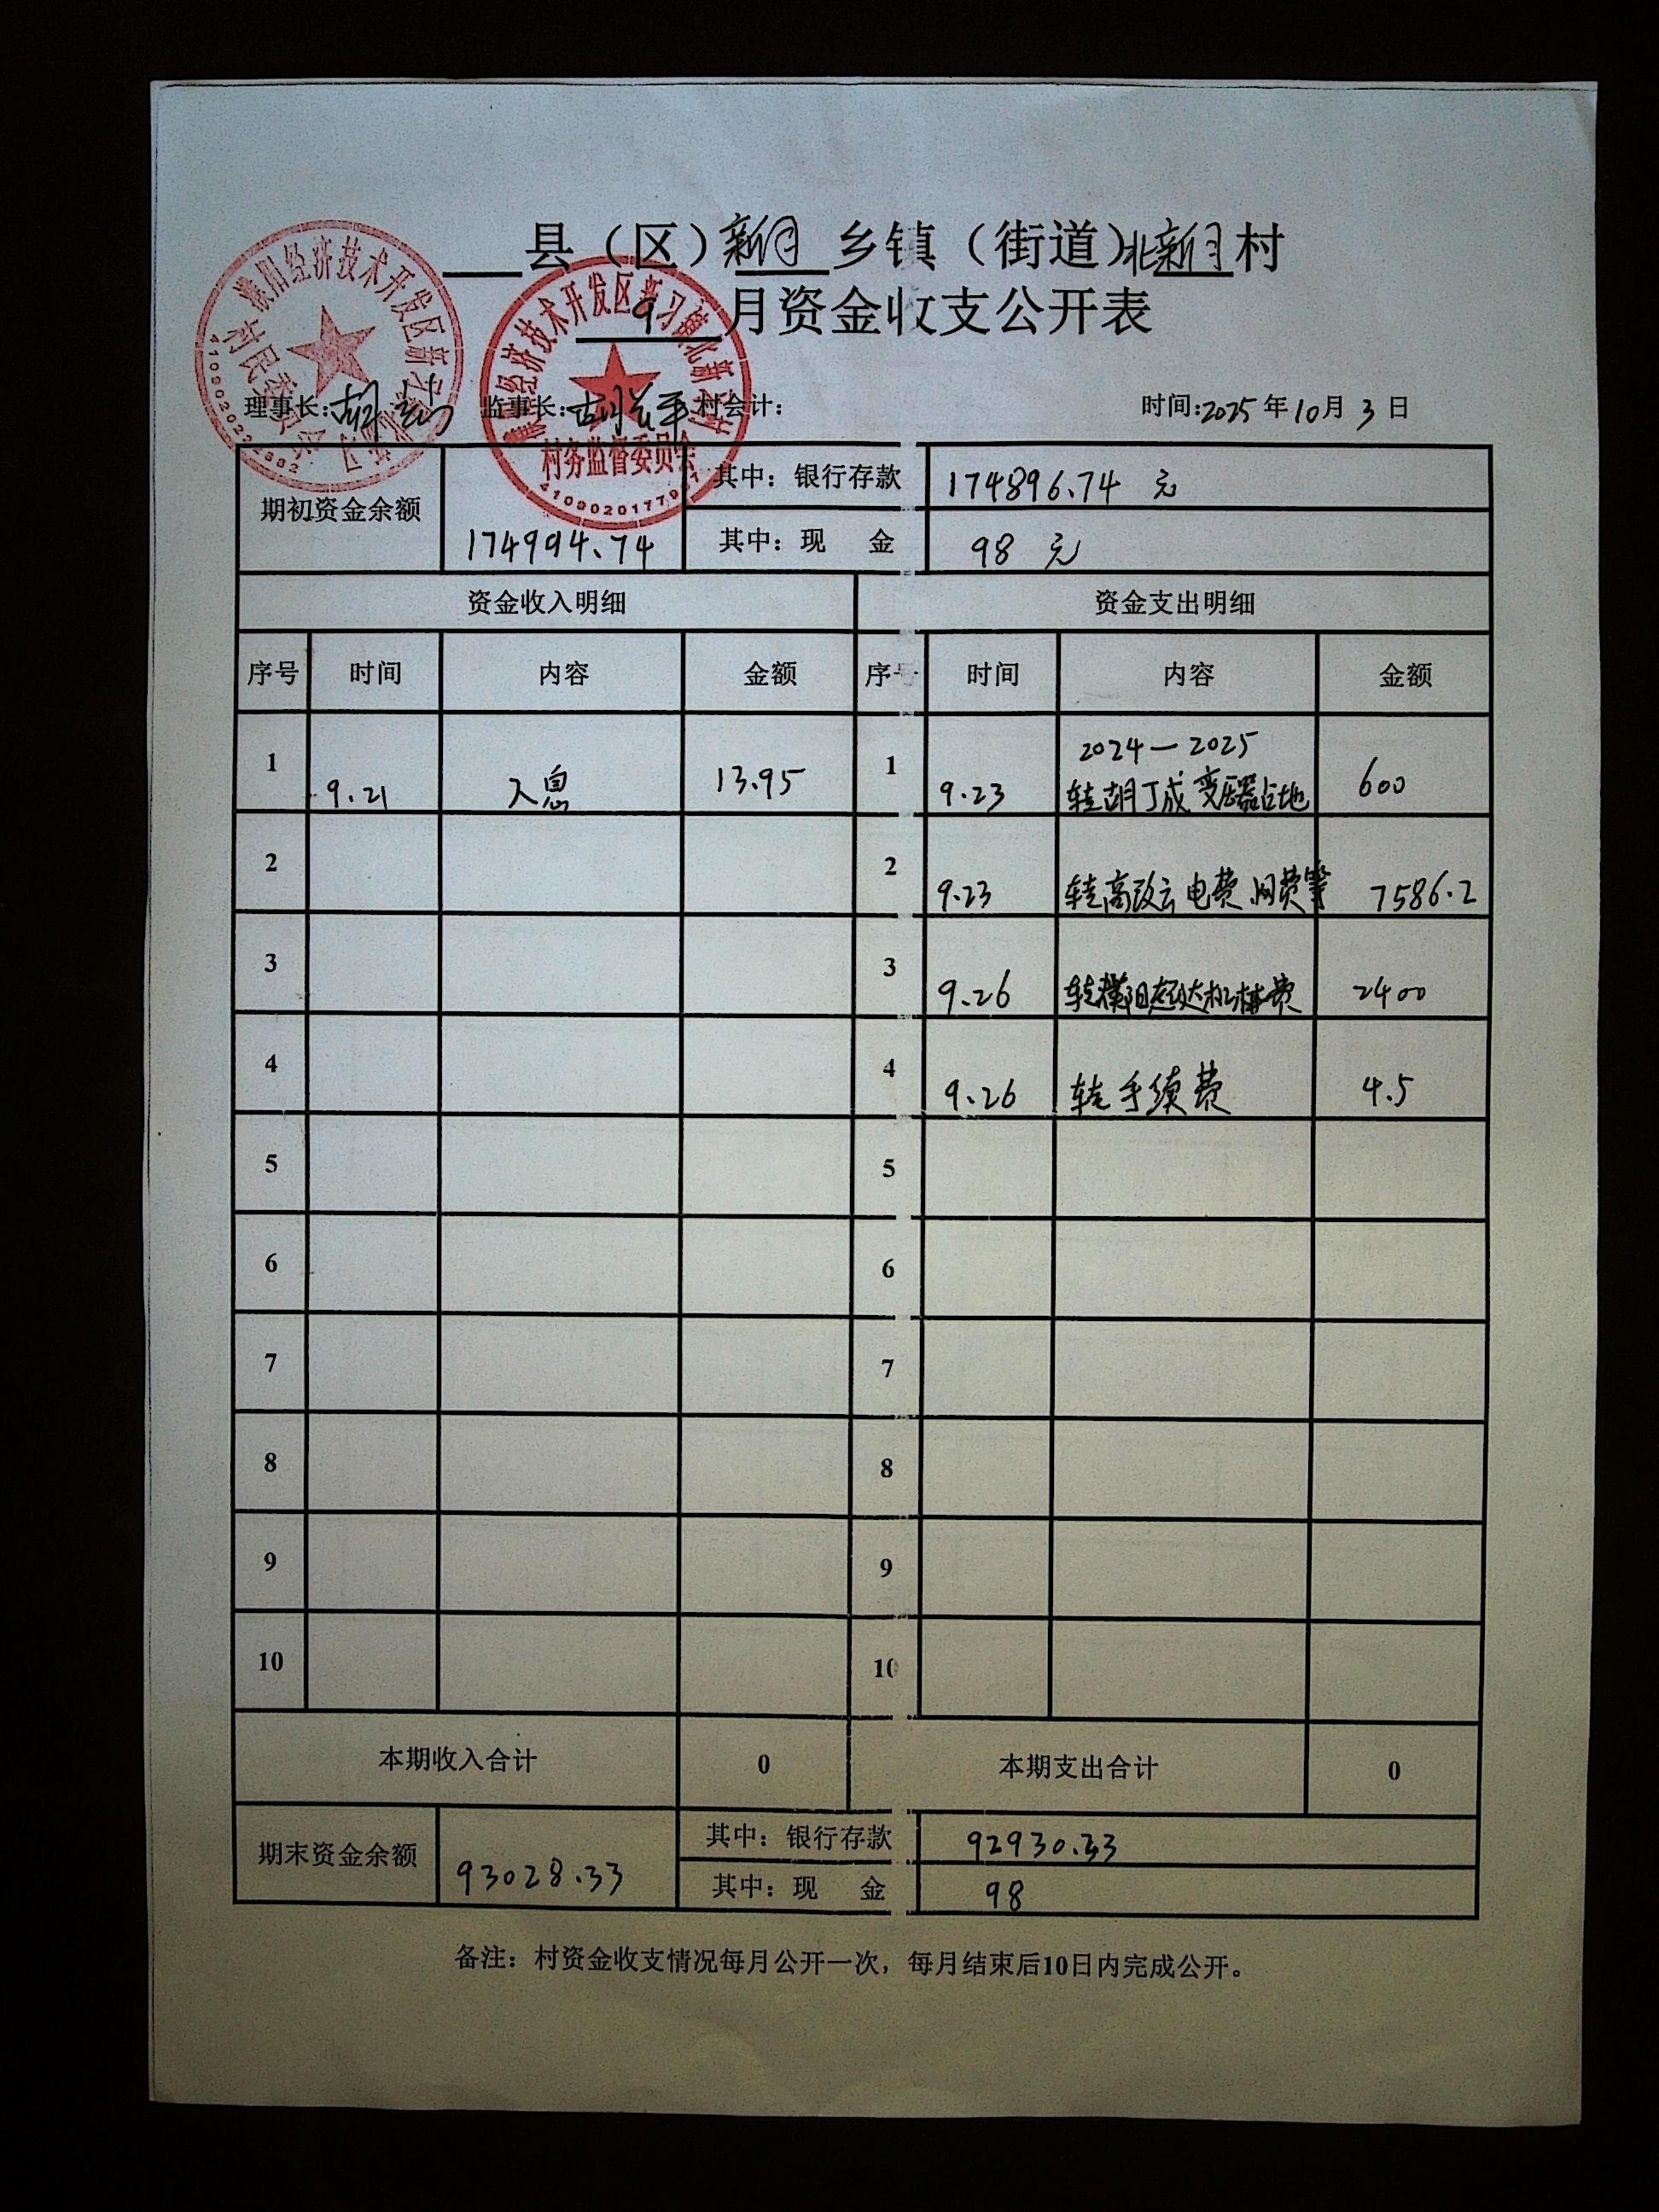 县（区）新习乡镇（街道）北新习村
9月资金收支公开表
濮阳经济技术开发区新习
村民委员会
濮阳经济技术开发区新习镇北新习村
村务监督委员会
理事长： 监事长： 村会计： 时间：2025年10月3日
期初资金余额 174994.74 其中：银行存款 174896.74 元
其中：现 金 98 元
资金收入明细 资金支出明细
序号 时间 内容 金额 序号 时间 内容 金额
1 9.21 入息 13.95 1 9.23 2024—2025
转胡丁成变压器占地 600
2 2 9.23 转高改云电费、网费等 7586.2
3 3 9.26 转濮阳超达机械费 2400
4 4 9.26 转手续费 4.5
5 5
6 6
7 7
8 8
9 9
10 10
本期收入合计 0 本期支出合计 0
期末资金余额 93028.33 其中：银行存款 92930.33
其中：现 金 98
备注：村资金收支情况每月公开一次，每月结束后10日内完成公开。